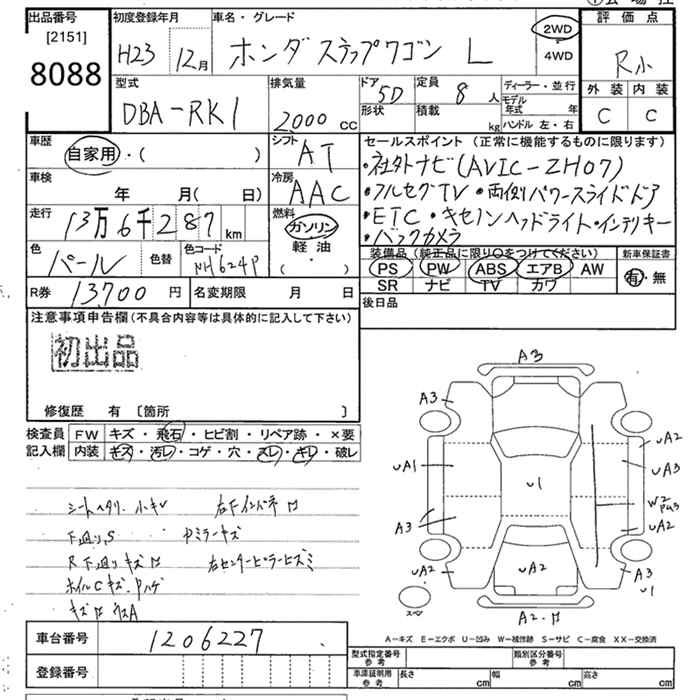 出品番号
[2151]
8088
初度登録年月
H23 12月
車名・グレード
ホンダ ステップワゴン L
2WD
4WD
評価点
R小
外装 内装
C C
型式
DBA-RK1
排気量
2000 cc
ドア 5D
形状
定員 8 人
積載 kg
ディーラー・並行
モデル年式 年
ハンドル 左・右
車歴
自家用・( )
シフト
AT
セールスポイント (正常に機能するものに限ります)
・社外ナビ(AVIC-ZH07)
・フルセグTV・両側パワースライドドア
・ETC・キセノンヘッドライト・インテリキー
・バックカメラ
車検
年 月( 日)
冷房
AAC
走行
13万6千287 km
燃料
ガソリン
軽油
( )
色
パール
色替
色コード
NH624P
装備品 (純正品に限り○をつけてください)
PS PW ABS エアB AW
SR ナビ TV カワ
新車保証書
有・無
R券 13,700 円
名変期限 月 日
後日品
注意事項申告欄 (不具合内容等は具体的に記入して下さい)
初出品
修復歴 有 [箇所 ]
検査員記入欄
FW キズ・飛石・ヒビ割・リペア跡・×要
内装 キズ・汚レ・コゲ・穴・スレ・キレ・破レ
シートヘタリ・小キレ
下廻りS
R下廻りキズ
ホイルCキズ・ハゲ
A3
A3
UA2
UA1
UA3
U1
W2
UA2
A3
UA2
UA2
A3
U1
A2
スペア
A-キズ E-エクボ U-凹み W-補修跡 S-サビ C-腐食 XX-交換済
車台番号 1206227
登録番号
型式指定番号 参考
類別区分番号 参考
車庫証明用 参考
長さ cm 幅 cm 高さ cm